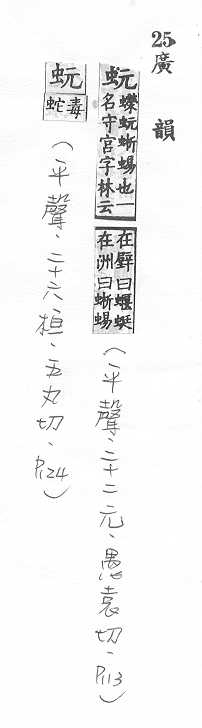 25廣韻
蚖
蠑蚖蜥蜴也一
名守宮字林云
在壁曰蝘蜓
在洲曰蜥蜴
(上平聲、二十二元、愚袁切、P113)
蚖
毒
蛇
(上平聲、二十六桓、五丸切、P124)